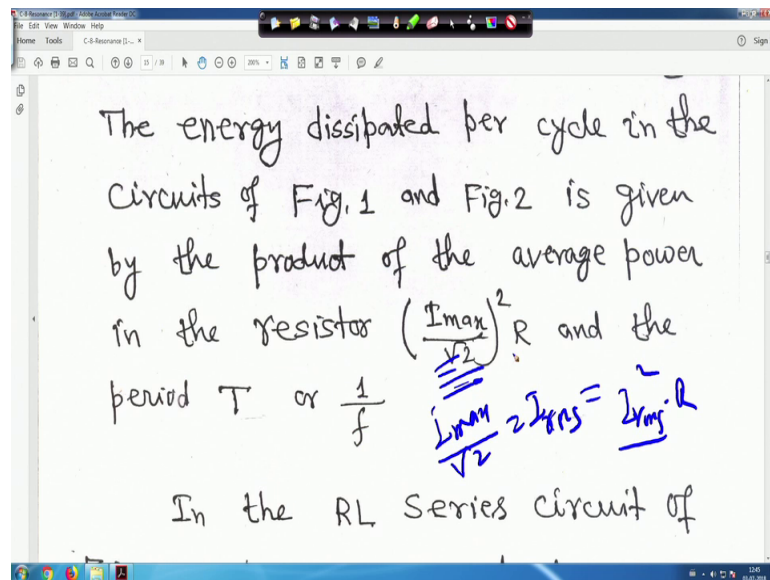 C-8-Resonance [1-39].pdf - Adobe Acrobat Reader DC
File Edit View Window Help
Home Tools C-8-Resonance [1-... × Sign
15 / 39 200%
The energy dissipated per cycle in the
circuits of Fig. 1 and Fig. 2 is given
by the product of the average power
in the resistor (Imax/√2)² R and the
period T or 1/f
Imax/√2 = Irms = I²rms · R
In the RL Series circuit of
12:45